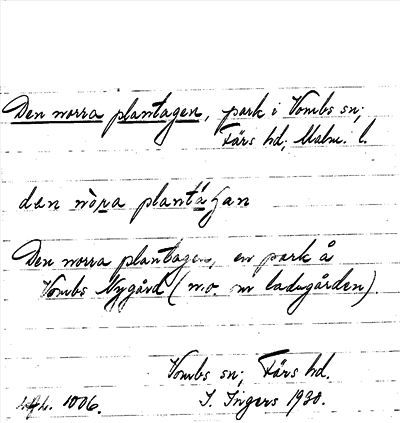 Den norra plantagen, park i Vombs sn;
Färs hd; Malm. l.
den nòra plantágan
Den norra plantagen, en park å
Vombs Nygård (n.o. om ladugården).
Vombs sn; Färs hd.
1006. I. Ingers 1930.